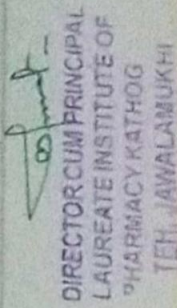 DIRECTOR CUM PRINCIPAL
LAUREATE INSTITUTE OF
PHARMACY KATHOG
TEH. JAWALAMUKHI